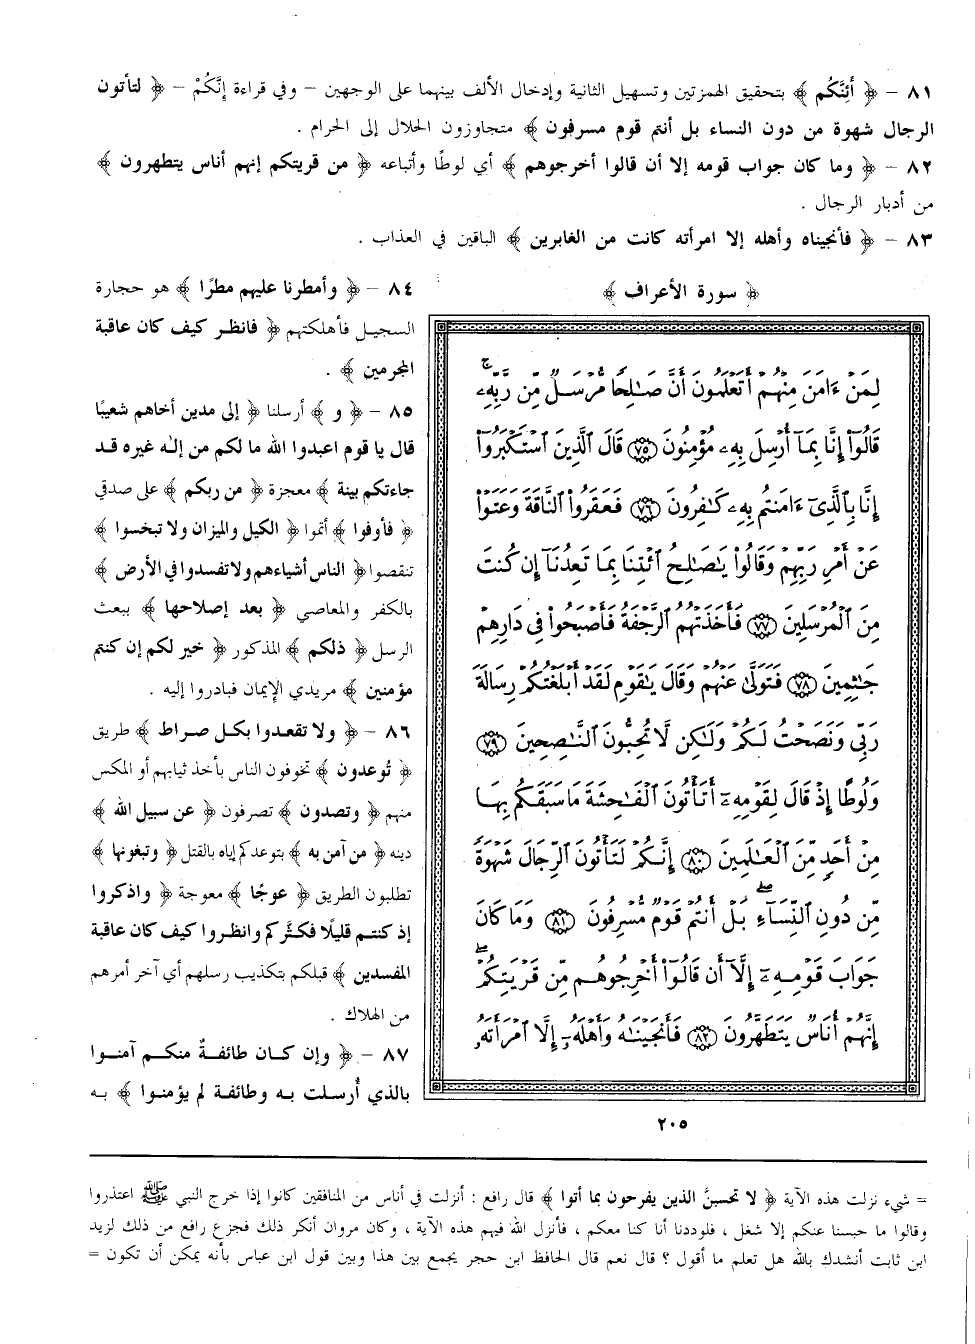 ٨١ – ﴿ أَئِنَّكُم ﴾ بتحقيق الهمزتين وتسهيل الثانية وإدخال الألف بينهما على الوجهين – وفي قراءة إِنَّكُمْ – ﴿ لتأتون
الرجال شهوة من دون النساء بل أنتم قوم مسرفون ﴾ متجاوزون الحلال إلى الحرام .
٨٢ – ﴿ وما كان جواب قومه إلا أن قالوا أخرجوهم ﴾ أي لوطًا وأتباعه ﴿ من قريتكم إنهم أناس يتطهرون ﴾
من أدبار الرجال .
٨٣ – ﴿ فأنجيناه وأهله إلا امرأته كانت من الغابرين ﴾ الباقين في العذاب .
﴿ سورة الأعراف ﴾
لِمَنْ ءَامَنَ مِنْهُمْ أَتَعْلَمُونَ أَنَّ صَٰلِحًا مُّرْسَلٌ مِّن رَّبِّهِۦ ۚ
قَالُوٓا۟ إِنَّا بِمَآ أُرْسِلَ بِهِۦ مُؤْمِنُونَ ٧٥ قَالَ ٱلَّذِينَ ٱسْتَكْبَرُوٓا۟
إِنَّا بِٱلَّذِىٓ ءَامَنتُم بِهِۦ كَٰفِرُونَ ٧٦ فَعَقَرُوا۟ ٱلنَّاقَةَ وَعَتَوْا۟
عَنْ أَمْرِ رَبِّهِمْ وَقَالُوا۟ يَٰصَٰلِحُ ٱئْتِنَا بِمَا تَعِدُنَآ إِن كُنتَ
مِنَ ٱلْمُرْسَلِينَ ٧٧ فَأَخَذَتْهُمُ ٱلرَّجْفَةُ فَأَصْبَحُوا۟ فِى دَارِهِمْ
جَٰثِمِينَ ٧٨ فَتَوَلَّىٰ عَنْهُمْ وَقَالَ يَٰقَوْمِ لَقَدْ أَبْلَغْتُكُمْ رِسَالَةَ
رَبِّى وَنَصَحْتُ لَكُمْ وَلَٰكِن لَّا تُحِبُّونَ ٱلنَّٰصِحِينَ ٧٩
وَلُوطًا إِذْ قَالَ لِقَوْمِهِۦٓ أَتَأْتُونَ ٱلْفَٰحِشَةَ مَا سَبَقَكُم بِهَا
مِنْ أَحَدٍ مِّنَ ٱلْعَٰلَمِينَ ٨٠ إِنَّكُمْ لَتَأْتُونَ ٱلرِّجَالَ شَهْوَةً
مِّن دُونِ ٱلنِّسَآءِ ۚ بَلْ أَنتُمْ قَوْمٌ مُّسْرِفُونَ ٨١ وَمَا كَانَ
جَوَابَ قَوْمِهِۦٓ إِلَّآ أَن قَالُوٓا۟ أَخْرِجُوهُم مِّن قَرْيَتِكُمْ ۖ
إِنَّهُمْ أُنَاسٌ يَتَطَهَّرُونَ ٨٢ فَأَنجَيْنَٰهُ وَأَهْلَهُۥٓ إِلَّا ٱمْرَأَتَهُۥ
٢٠٥
٨٤ – ﴿ وأمطرنا عليهم مطرًا ﴾ هو حجارة
السجيل فأهلكتهم ﴿ فانظر كيف كان عاقبة
المجرمين ﴾ .
٨٥ – ﴿ و ﴾ أرسلنا ﴿ إلى مدين أخاهم شعيبًا
قال يا قوم اعبدوا الله ما لكم من إلٰه غيره قد
جاءتكم بينة ﴾ معجزة ﴿ من ربكم ﴾ على صدقي
﴿ فأوفوا ﴾ أتموا ﴿ الكيل والميزان ولا تبخسوا ﴾
تنقصوا ﴿ الناس أشياءهم ولا تفسدوا في الأرض ﴾
بالكفر والمعاصي ﴿ بعد إصلاحها ﴾ ببعث
الرسل ﴿ ذلكم ﴾ المذكور ﴿ خير لكم إن كنتم
مؤمنين ﴾ مريدي الإيمان فبادروا إليه .
٨٦ – ﴿ ولا تقعدوا بكل صراط ﴾ طريق
﴿ تُوعدون ﴾ تخوفون الناس بأخذ ثيابهم أو المكس
منهم ﴿ وتصدون ﴾ تصرفون ﴿ عن سبيل الله ﴾
دينه ﴿ من آمن به ﴾ بتوعدكم إياه بالقتل ﴿ وتبغونها ﴾
تطلبون الطريق ﴿ عوجًا ﴾ معوجة ﴿ واذكروا
إذ كنتم قليلًا فكثَّركم وانظروا كيف كان عاقبة
المفسدين ﴾ قبلكم بتكذيب رسلهم أي آخر أمرهم
من الهلاك .
٨٧ – ﴿ وإن كان طائفةٌ منكم آمنوا
بالذي أُرسلت به وطائفة لم يؤمنوا ﴾ به
= شيء نزلت هذه الآية ﴿ لا تحسبنَّ الذين يفرحون بما أتوا ﴾ قال رافع : أنزلت في أناس من المنافقين كانوا إذا خرج النبي ﷺ اعتذروا
وقالوا ما حبسنا عنكم إلا شغل ، فلوددنا أنا كنا معكم ، فأنزل الله فيهم هذه الآية ، وكان مروان أنكر ذلك فجزع رافع من ذلك لزيد
ابن ثابت أنشدك بالله هل تعلم ما أقول ؟ قال نعم قال الحافظ ابن حجر يجمع بين هذا وبين قول ابن عباس بأنه يمكن أن تكون =